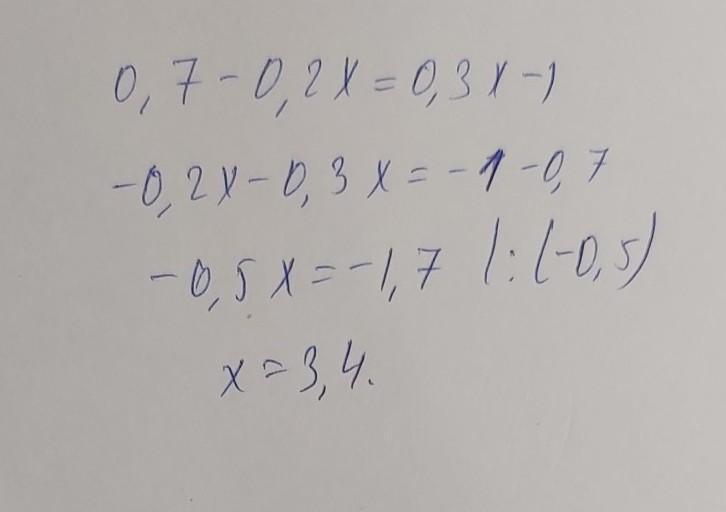 0,7-0,2x=0,3x-1
-0,2x-0,3x=-1-0,7
-0,5x=-1,7 |:(-0,5)
x=3,4.